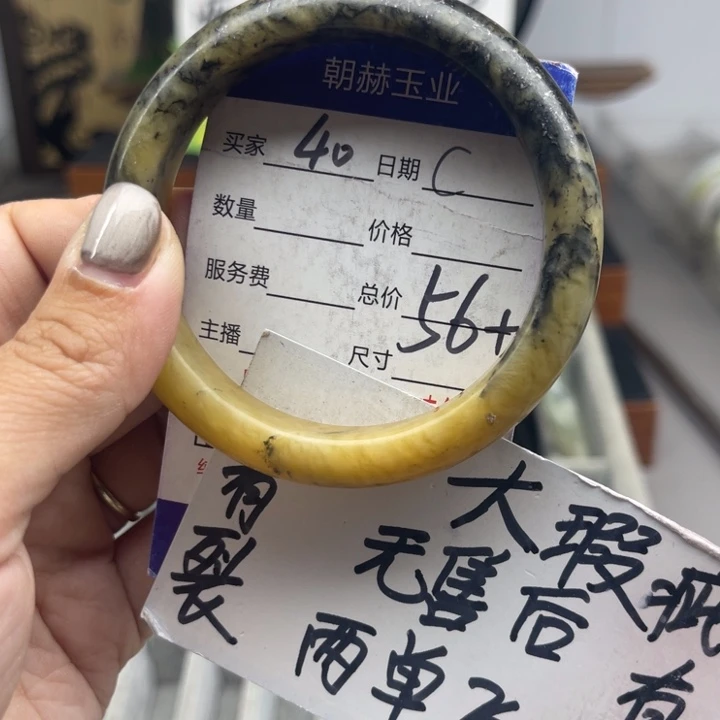 朝赫玉业
买家 40 日期 C
数量 价格
服务费 总价 56+
主播 尺寸
有裂
大瑕疵
无售后
两单不
有